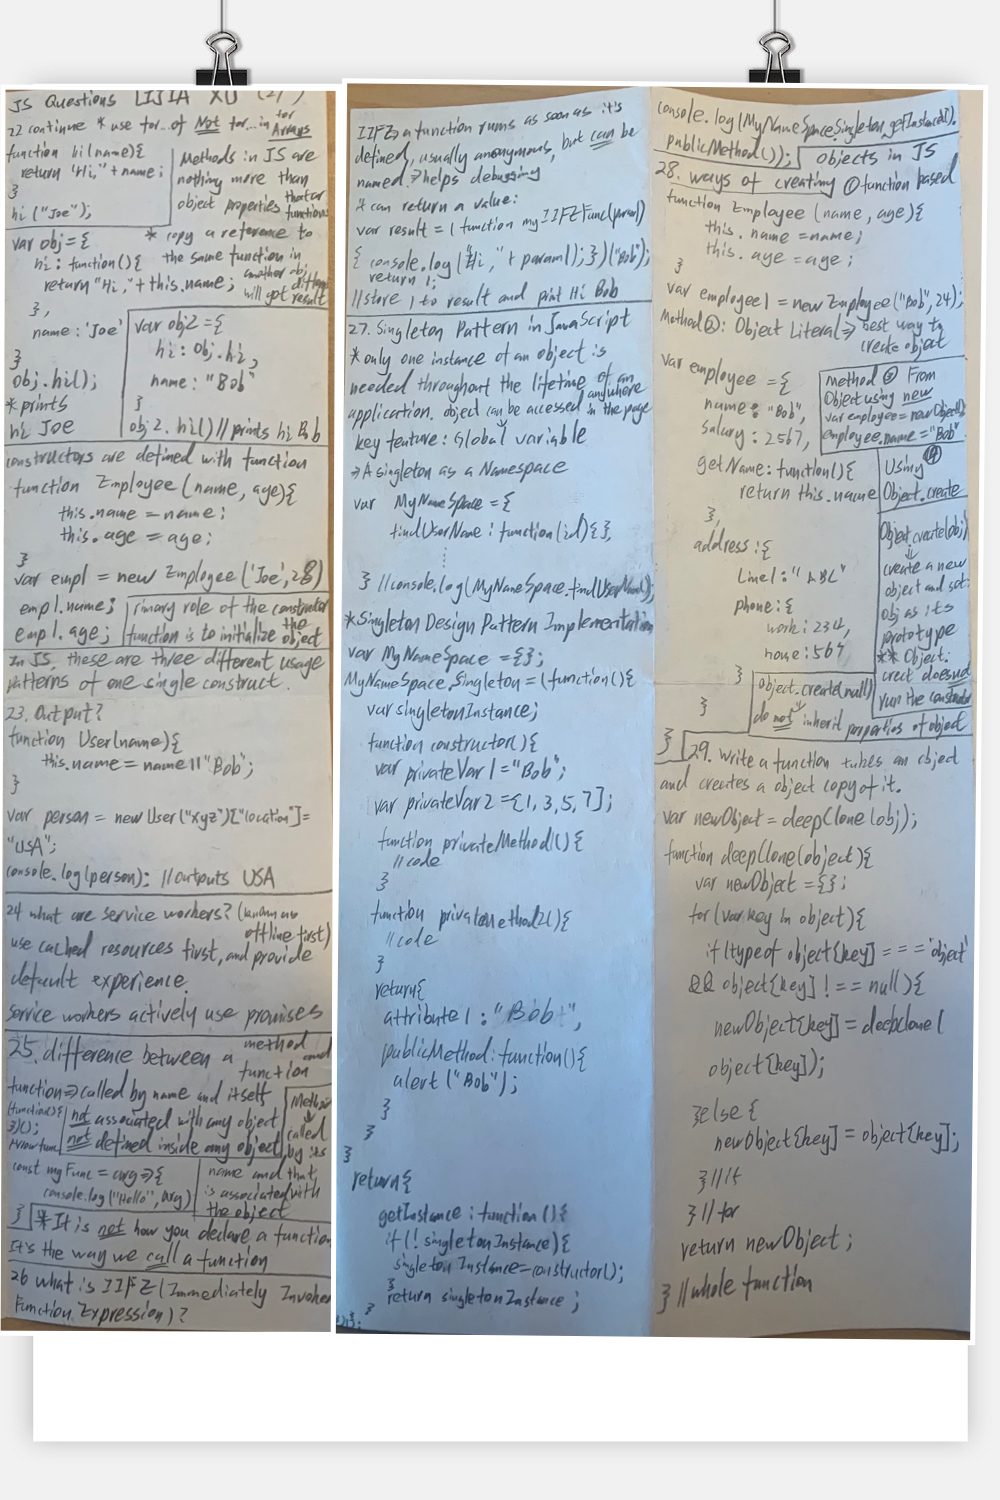 JS Questions LIJIA XU (21)
22 continue * use for...of Not for...in for Arrays
function hi(name){
return "Hi," + name;
}
hi ("Joe");
Methods in JS are
nothing more than
object properties that are
functions
var obj={
hi: function(){
return "Hi," + this.name;
},
name: 'Joe'
}
obj.hi();
* prints
hi JOE
* copy a reference to
the same function in
another obj
will get different
result
var obj2={
hi: Obj.hi,
name: "Bob"
}
obj2.hi() // prints hi Bob
constructors are defined with function
function Employee (name, age){
this.name = name;
this.age = age;
}
var emp1 = new Employee ('Joe', 28)
emp1.name;
emp1.age;
rimary role of the constructor
function is to initialize the object
In JS, these are three different usage
patterns of one single construct.
23. Output?
function User(name){
this.name = name||"Bob";
}
var person = new User("xyz")["location"]=
"USA";
console.log(person); // outputs USA
24 what are service workers? (known as
offline first)
use cached resources first, and provide
default experience.
Service workers actively use promises
25. difference between a method and
function
function => called by name and itself
(function(){
})();
Arrow func
not associated with any object
not defined inside any object
const myFunc = arg=>{
console.log("Hello", arg)
}
Method
called
by its
name and that
is associated with
the object
* It is not how you declare a function
It's the way we call a function
26 what is IIFE (Immediately Invoked
Function Expression)?
IIFE, a function runs as soon as it's
defined, usually anonymous, but can be
named => helps debugging
* can return a value:
var result = (function myIIFEFunc(param1)
{ console.log("Hi," + param1); }) ("Bob");
return 1;
// store 1 to result and print Hi Bob
27. Singleton Pattern in JavaScript
* only one instance of an object is
needed throughout the lifetime of an
application. object can be accessed anywhere in the page
key feature: Global variable
=> A singleton as a Namespace
var MyNameSpace = {
findUserName: function(id){},
⋮
} //console.log(MyNameSpace.findUserName());
* Singleton Design Pattern Implementation
var MyNameSpace = {};
MyNameSpace.Singleton = (function(){
var singletonInstance;
function constructor(){
var privateVar1 = "Bob";
var privateVar2 = [1, 3, 5, 7];
function privateMethod1(){
//code
}
function privatemethod2(){
//code
}
return{
attribute1: "Bob",
publicMethod: function(){
alert ("Bob");
}
}
}
return{
getInstance: function (){
if(! singletonInstance){
singletonInstance=constructor();
}
return singletonInstance;
}
console.log(MyNameSpace.Singleton.getInstance().
publicMethod());
28. ways of creating objects in JS
① function based
function Employee (name, age){
this.name = name;
this.age = age;
}
var employee1 = new Employee("Bob", 24);
Method②: Object Literal => best way to
create object
var employee = {
name: "Bob",
salary: 2567,
getName: function(){
return this.name
},
address: {
Line1: "ABC"
phone: {
work: 234,
home: 567
}
}
}
method ③ From
Object using new
var employee = new Object();
employee.name = "Bob"
Using ④
Object.create
Object.create(obj)
create a new
object and set
obj as its
prototype
** Object.
creat doesnot
run the constructor
object.create(null)
do not inherit properties of object
29. Write a function takes an object
and creates a object copy of it.
var newObject = deepClone(obj);
function deepClone(object){
var newObject = {};
for(var key in object){
if (typeof object[key] === 'object'
&& object[key] !== null){
newObject[key] = deepclone(
object[key]);
}else {
newObject[key] = object[key];
} //if
} // for
return newObject;
} //whole function